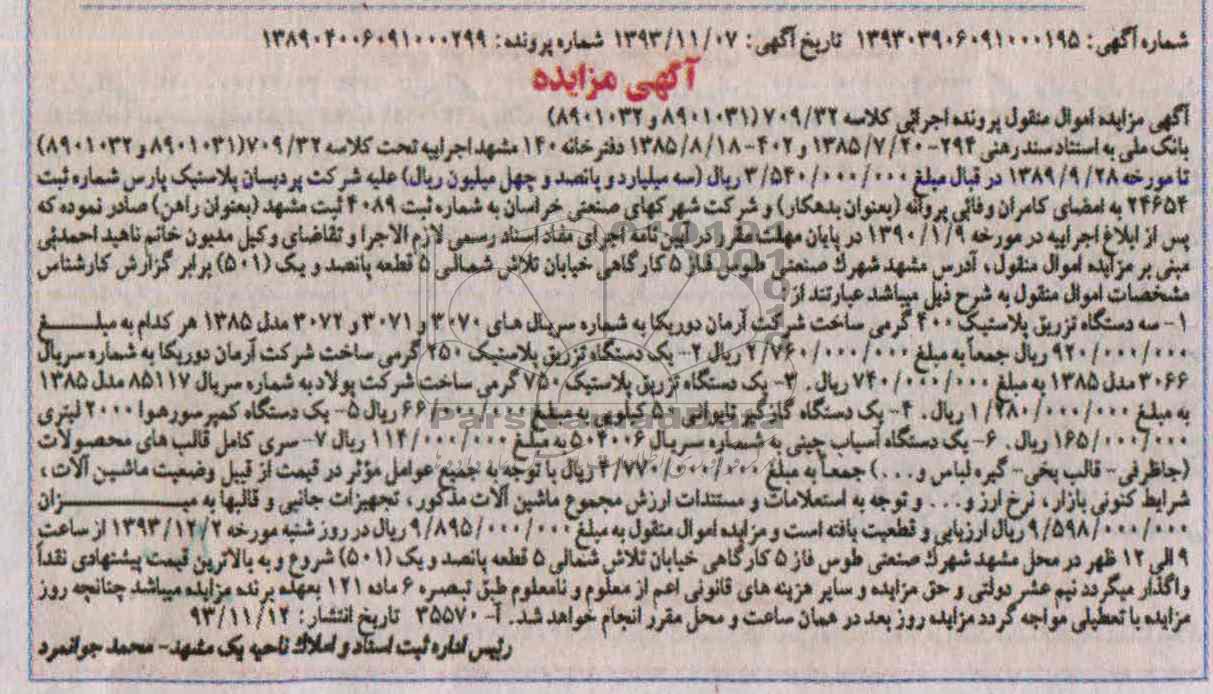 شماره آگهی: ۱۳۹۳۰۳۹۰۶۰۹۱۰۰۰۱۹۵ تاریخ آگهی: ۱۳۹۳/۱۱/۰۷ شماره پرونده: ۱۳۸۹۰۴۰۰۶۰۹۱۰۰۰۲۹۹
آگهی مزایده
آگهی مزایده اموال منقول پرونده اجرائی کلاسه ۷۰۹/۳۲ (۸۹۰۱۰۳۱ و ۸۹۰۱۰۳۲)
بانک ملی به استناد سند رهنی ۲۹۴-۱۳۸۵/۷/۲۰ و ۴۰۲-۱۳۸۵/۸/۱۸ دفترخانه ۱۴۰ مشهد اجراییه تحت کلاسه ۷۰۹/۳۲ (۸۹۰۱۰۳۱ و ۸۹۰۱۰۳۲)
تا مورخه ۱۳۸۹/۹/۲۸ در قبال مبلغ ۳/۵۴۰/۰۰۰/۰۰۰ ریال (سه میلیارد و پانصد و چهل میلیون ریال) علیه شرکت پردیسان پلاستیک پارس شماره ثبت
۲۴۶۵۴ به امضای کامران وفائی پروانه (بعنوان بدهکار) و شرکت شهرکهای صنعتی خراسان به شماره ثبت ۴۰۸۹ ثبت مشهد (بعنوان راهن) صادر نموده که
پس از ابلاغ اجراییه در مورخه ۱۳۹۰/۱/۹ در پایان مهلت مقرر در آیین نامه اجرای مفاد اسناد رسمی لازم الاجرا و تقاضای وکیل مدیون خانم ناهید احمدئی
مبنی بر مزایده اموال منقول، آدرس مشهد شهرک صنعتی طوس فاز ۵ کارگاهی خیابان تلاش شمالی ۵ قطعه پانصد و یک (۵۰۱) برابر گزارش کارشناس
مشخصات اموال منقول به شرح ذیل میباشد عبارتند از:
۱- سه دستگاه تزریق پلاستیک ۴۰۰ گرمی ساخت شرکت آرمان دوریکا به شماره سریال های ۳۰۷۰ و ۳۰۷۱ و ۳۰۷۲ مدل ۱۳۸۵ هر کدام به مبلغ
۹۲۰/۰۰۰/۰۰۰ ریال جمعاً به مبلغ ۲/۷۶۰/۰۰۰/۰۰۰ ریال ۲- یک دستگاه تزریق پلاستیک ۲۵۰ گرمی ساخت شرکت آرمان دوریکا به شماره سریال
۳۰۶۶ مدل ۱۳۸۵ به مبلغ ۷۴۰/۰۰۰/۰۰۰ ریال. ۳- یک دستگاه تزریق پلاستیک ۷۵۰ گرمی ساخت شرکت پولاد به شماره سریال ۸۵۱۱۷ مدل ۱۳۸۵
به مبلغ ۱/۲۸۰/۰۰۰/۰۰۰ ریال. ۴- یک دستگاه گازگیر تایوانی ۵۰ کیلویی به مبلغ ۶۶/۰۰۰/۰۰۰ ریال ۵- یک دستگاه کمپرسور هوا ۲۰۰۰ لیتری
۱۶۵/۰۰۰/۰۰۰ ریال. ۶- یک دستگاه آسیاب چینی به شماره سریال ۵۰۴۰۰۶ به مبلغ ۱۱۴/۰۰۰/۰۰۰ ریال ۷- سری کامل قالب های محصولات
(جاظرفی- قالب یخی- گیره لباس و...) جمعاً به مبلغ ۴/۷۷۰/۰۰۰/۰۰۰ ریال با توجه به جمیع عوامل مؤثر در قیمت از قبیل وضعیت ماشین آلات،
شرایط کنونی بازار، نرخ ارز و... و توجه به استعلامات و مستندات ارزش مجموع ماشین آلات مذکور، تجهیزات جانبی و قالبها به میزان
۹/۵۹۸/۰۰۰/۰۰۰ ریال ارزیابی و قطعیت یافته است و مزایده اموال منقول به مبلغ ۹/۸۹۵/۰۰۰/۰۰۰ ریال در روز شنبه مورخه ۱۳۹۳/۱۲/۲ از ساعت
۹ الی ۱۲ ظهر در محل مشهد شهرک صنعتی طوس فاز ۵ کارگاهی خیابان تلاش شمالی ۵ قطعه پانصد و یک (۵۰۱) شروع و به بالاترین قیمت پیشنهادی نقداً
واگذار میگردد نیم عشر دولتی و حق مزایده و سایر هزینه های قانونی اعم از معلوم و نامعلوم طبق تبصره ۶ ماده ۱۲۱ بعهده برنده مزایده میباشد چنانچه روز
مزایده با تعطیلی مواجه گردد مزایده روز بعد در همان ساعت و محل مقرر انجام خواهد شد. آ- ۳۵۵۷۰ تاریخ انتشار: ۹۳/۱۱/۱۲
رئیس اداره ثبت اسناد و املاک ناحیه یک مشهد- محمد جوانمرد
ParsNamadData